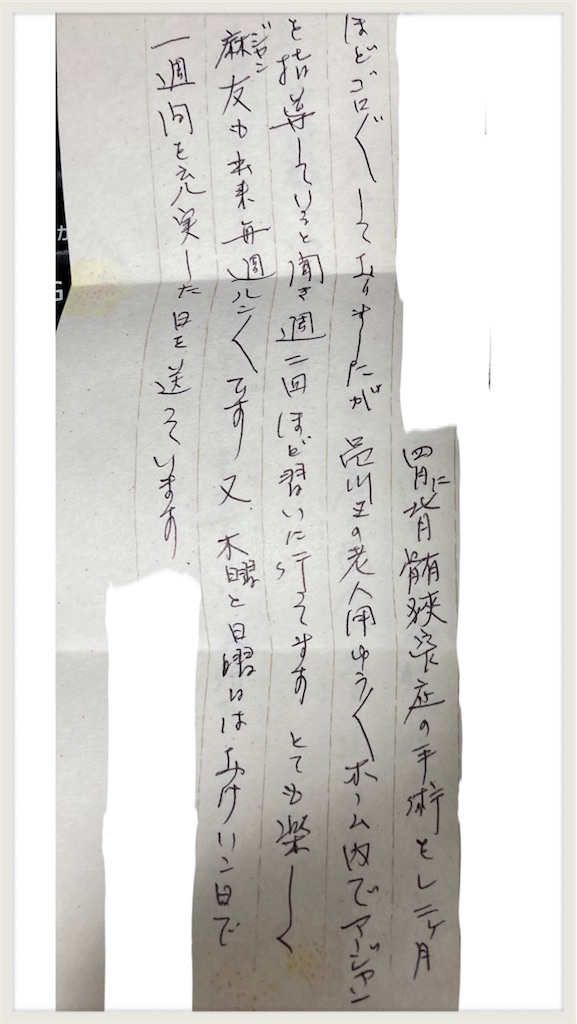 四月に背髄狭窄症の手術をし二ヶ月
ほどゴロ〲しておりましたが 品川区の老人用ゆう〱ホーム内でマージャン
を指導していると聞き週二回ほど習いに行ってます とても楽しく
麻友も出来毎週ルン〱です 又 木曜と日曜日はおけいこ日で
一週間を充実した日を送っています